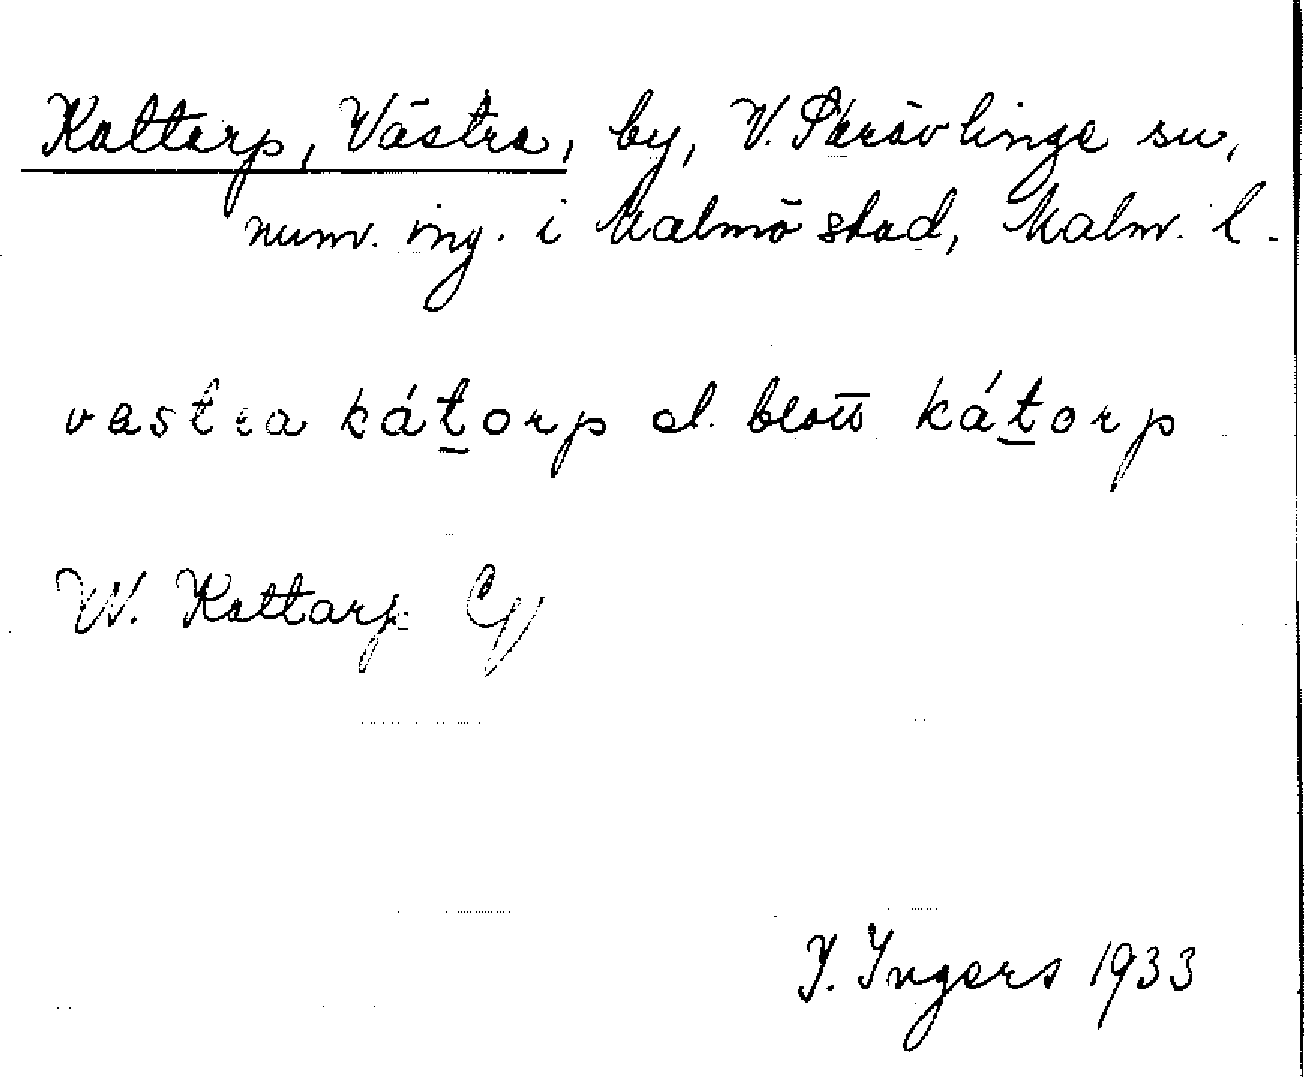 Kattarp, Västra, by, V. Skrävlinge sn,
numv. ing. i Malmö stad, Malm. l.
vastra kátorp el. blott kátorp
W. Kattarp
I. Ingers 1933